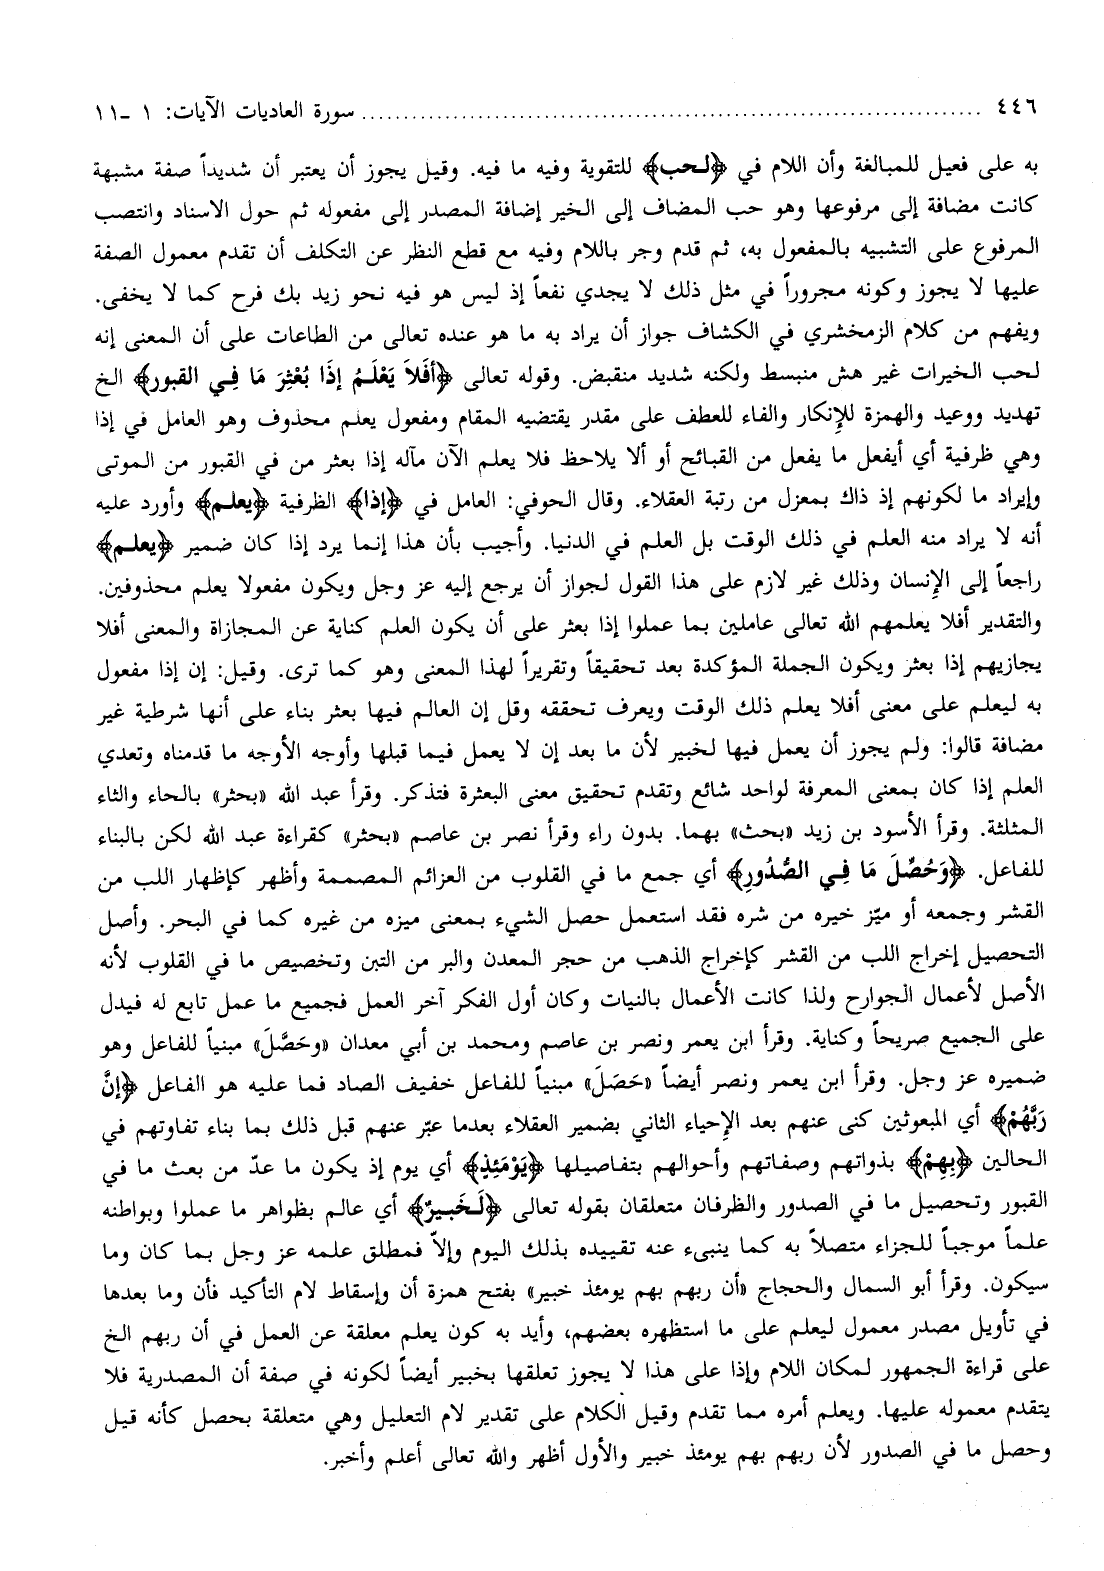 ٤٤٦ ........................................................................ سورة العاديات الآيات: ١ ـ١١
به على فعيل للمبالغة وأن اللام في ﴿لحب﴾ للتقوية وفيه ما فيه. وقيل يجوز أن يعتبر أن شديداً صفة مشبهة
كانت مضافة إلى مرفوعها وهو حب المضاف إلى الخير إضافة المصدر إلى مفعوله ثم حول الاسناد وانتصب
المرفوع على التشبيه بالمفعول به، ثم قدم وجر باللام وفيه مع قطع النظر عن التكلف أن تقدم معمول الصفة
عليها لا يجوز وكونه مجروراً في مثل ذلك لا يجدي نفعاً إذ ليس هو فيه نحو زيد بك فرح كما لا يخفى.
ويفهم من كلام الزمخشري في الكشاف جواز أن يراد به ما هو عنده تعالى من الطاعات على أن المعنى إنه
لحب الخيرات غير هش منبسط ولكنه شديد منقبض. وقوله تعالى ﴿أَفَلاَ يَعْلَمُ إذَا بُعْثِرَ مَا فِي القبور﴾ الخ
تهديد ووعيد والهمزة للإنكار والفاء للعطف على مقدر يقتضيه المقام ومفعول يعلم محذوف وهو العامل في إذا
وهي ظرفية أي أيفعل ما يفعل من القبائح أو ألا يلاحظ فلا يعلم الآن مآله إذا بعثر من في القبور من الموتى
وإيراد ما لكونهم إذ ذاك بمعزل من رتبة العقلاء. وقال الحوفي: العامل في ﴿إذا﴾ الظرفية ﴿يعلم﴾ وأورد عليه
أنه لا يراد منه العلم في ذلك الوقت بل العلم في الدنيا. وأجيب بأن هذا إنما يرد إذا كان ضمير ﴿يعلم﴾
راجعاً إلى الإنسان وذلك غير لازم على هذا القول لجواز أن يرجع إليه عز وجل ويكون مفعولا يعلم محذوفين.
والتقدير أفلا يعلمهم الله تعالى عاملين بما عملوا إذا بعثر على أن يكون العلم كناية عن المجازاة والمعنى أفلا
يجازيهم إذا بعثر ويكون الجملة المؤكدة بعد تحقيقاً وتقريراً لهذا المعنى وهو كما ترى. وقيل: إن إذا مفعول
به ليعلم على معنى أفلا يعلم ذلك الوقت ويعرف تحققه وقل إن العالم فيها بعثر بناء على أنها شرطية غير
مضافة قالوا: ولم يجوز أن يعمل فيها لخبير لأن ما بعد إن لا يعمل فيما قبلها وأوجه الأوجه ما قدمناه وتعدي
العلم إذا كان بمعنى المعرفة لواحد شائع وتقدم تحقيق معنى البعثرة فتذكر. وقرأ عبد الله «بحثر» بالحاء والثاء
المثلثة. وقرأ الأسود بن زيد «بحث» بهما. بدون راء وقرأ نصر بن عاصم «بحثر» كقراءة عبد الله لكن بالبناء
للفاعل. ﴿وَحُصِّلَ مَا فِي الصُّدُورِ﴾ أي جمع ما في القلوب من العزائم المصممة وأظهر كإظهار اللب من
القشر وجمعه أو ميّز خيره من شره فقد استعمل حصل الشيء بمعنى ميزه من غيره كما في البحر. وأصل
التحصيل إخراج اللب من القشر كإخراج الذهب من حجر المعدن والبر من التبن وتخصيص ما في القلوب لأنه
الأصل لأعمال الجوارح ولذا كانت الأعمال بالنيات وكان أول الفكر آخر العمل فجميع ما عمل تابع له فيدل
على الجميع صريحاً وكناية. وقرأ ابن يعمر ونصر بن عاصم ومحمد بن أبي معدان «وحَصَّلَ» مبنياً للفاعل وهو
ضميره عز وجل. وقرأ ابن يعمر ونصر أيضاً «حَصَلَ» مبنياً للفاعل خفيف الصاد فما عليه هو الفاعل ﴿إنَّ
رَبَّهُمْ﴾ أي المبعوثين كنى عنهم بعد الإحياء الثاني بضمير العقلاء بعدما عبّر عنهم قبل ذلك بما بناء تفاوتهم في
الحالين ﴿بِهِمْ﴾ بذواتهم وصفاتهم وأحوالهم بتفاصيلها ﴿يَوْمَئِذٍ﴾ أي يوم إذ يكون ما عدّ من بعث ما في
القبور وتحصيل ما في الصدور والظرفان متعلقان بقوله تعالى ﴿لَخَبيرٌ﴾ أي عالم بظواهر ما عملوا وبواطنه
علماً موجباً للجزاء متصلاً به كما ينبىء عنه تقييده بذلك اليوم وإلاّ فمطلق علمه عز وجل بما كان وما
سيكون. وقرأ أبو السمال والحجاج «أن ربهم بهم يومئذ خبير» بفتح همزة أن وإسقاط لام التأكيد فأن وما بعدها
في تأويل مصدر معمول ليعلم على ما استظهره بعضهم، وأيد به كون يعلم معلقة عن العمل في أن ربهم الخ
على قراءة الجمهور لمكان اللام وإذا على هذا لا يجوز تعلقها بخبير أيضاً لكونه في صفة أن المصدرية فلا
يتقدم معموله عليها. ويعلم أمره مما تقدم وقيل الكلام على تقدير لام التعليل وهي متعلقة بحصل كأنه قيل
وحصل ما في الصدور لأن ربهم بهم يومئذ خبير والأول أظهر والله تعالى أعلم وأخبر.